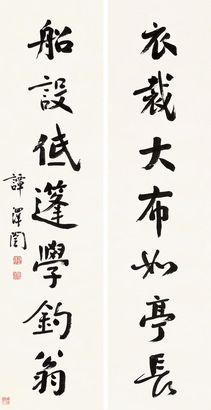 衣裁大布如亭長
船設低蓬學釣翁
譚澤闓